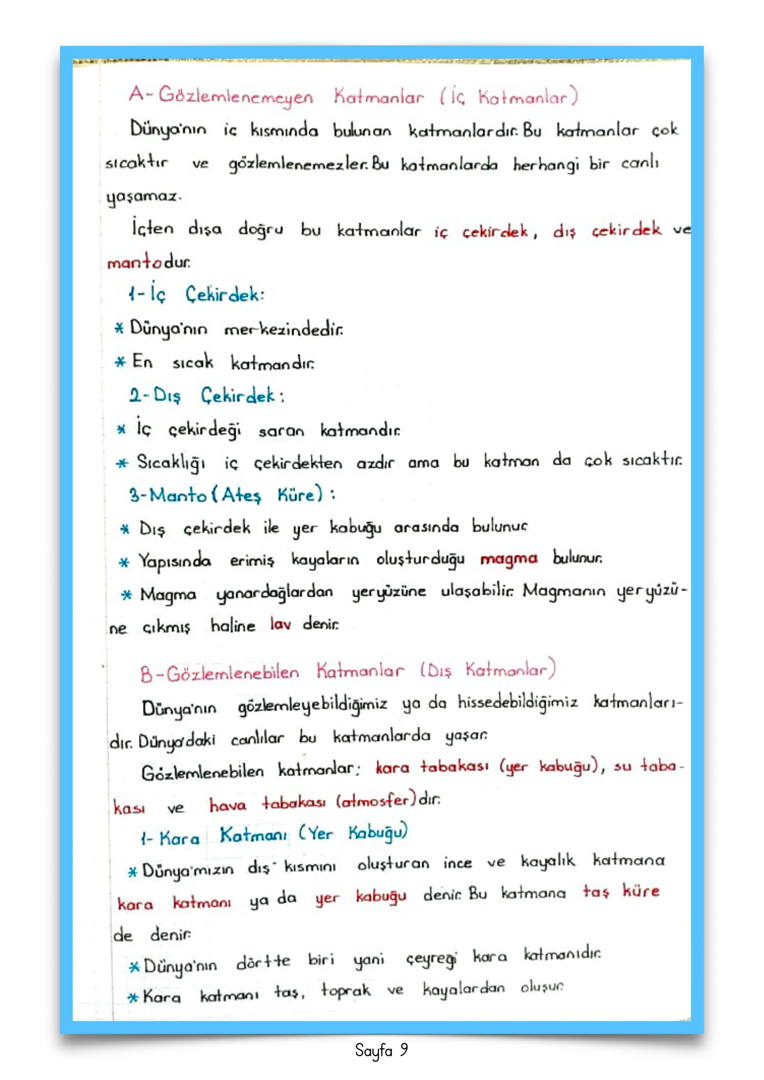 A- Gözlemlenemeyen Katmanlar (İç Katmanlar)
Dünya'nın iç kısmında bulunan katmanlardır. Bu katmanlar çok
sıcaktır ve gözlemlenemezler. Bu katmanlarda herhangi bir canlı
yaşamaz.
İçten dışa doğru bu katmanlar iç çekirdek, dış çekirdek ve
mantodur.
1- İç Çekirdek:
* Dünya'nın merkezindedir.
* En sıcak katmandır.
2- Dış Çekirdek:
* İç çekirdeği saran katmandır.
* Sıcaklığı iç çekirdekten azdır ama bu katman da çok sıcaktır.
3- Manto (Ateş Küre):
* Dış çekirdek ile yer kabuğu arasında bulunur.
* Yapısında erimiş kayaların oluşturduğu magma bulunur.
* Magma yanardağlardan yeryüzüne ulaşabilir. Magmanın yeryüzü-
ne çıkmış haline lav denir.
B- Gözlemlenebilen Katmanlar (Dış Katmanlar)
Dünya'nın gözlemleyebildiğimiz ya da hissedebildiğimiz katmanları-
dır. Dünya'daki canlılar bu katmanlarda yaşar.
Gözlemlenebilen katmanlar; kara tabakası (yer kabuğu), su taba-
kası ve hava tabakası (atmosfer)dır.
1- Kara Katmanı (Yer Kabuğu)
* Dünya'mızın dış kısmını oluşturan ince ve kayalık katmana
kara katmanı ya da yer kabuğu denir. Bu katmana taş küre
de denir.
* Dünya'nın dörtte biri yani çeyreği kara katmanıdır.
* Kara katmanı taş, toprak ve kayalardan oluşur.
Sayfa 9